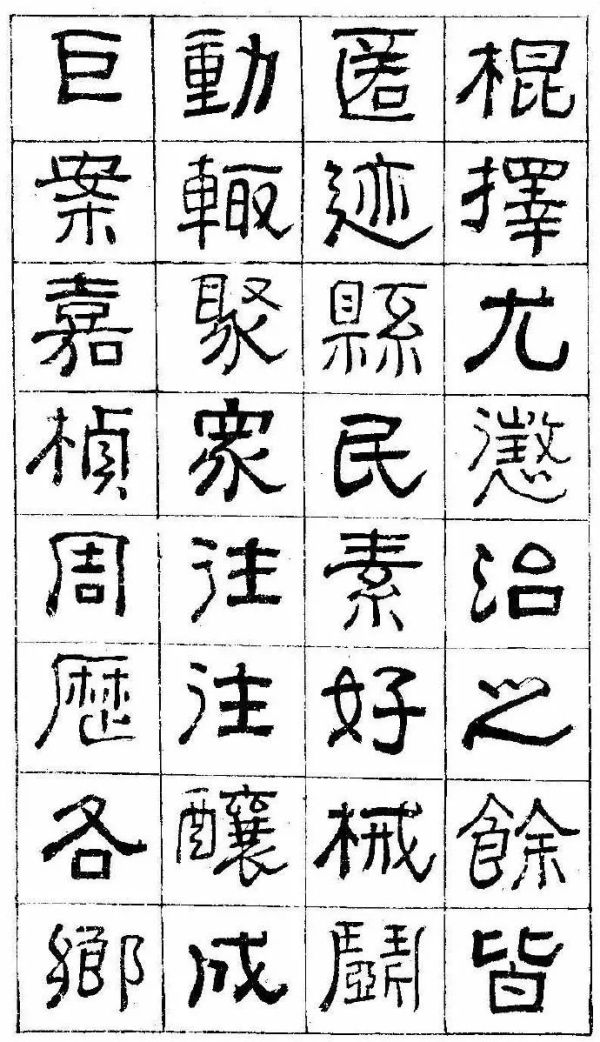 棍擇尤懲治之餘皆
匿迹縣民素好械鬭
動輒聚眾往往釀成
巨案嘉楨周歷各鄉